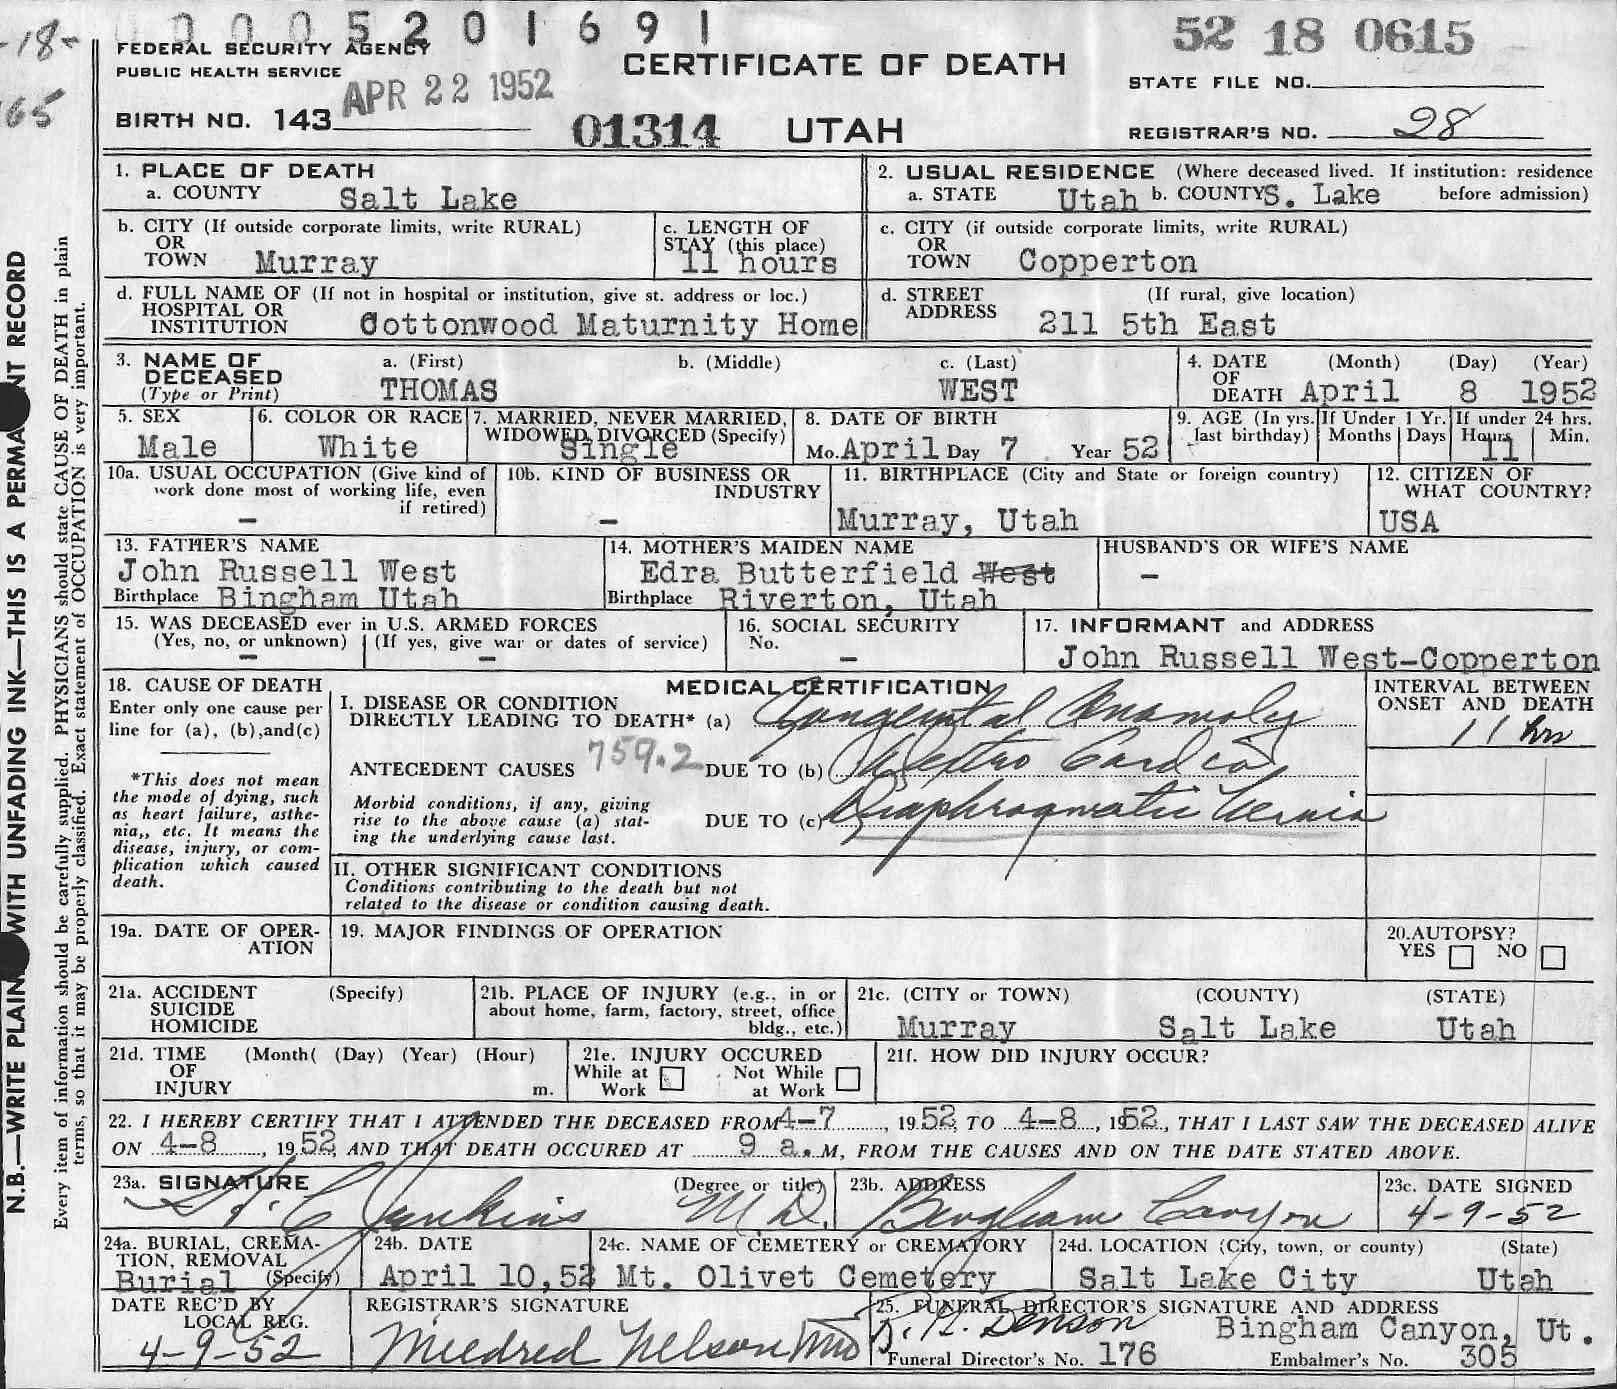 -18-
65
0 0 0 5 2 0 1 6 9 1
52 18 0615
FEDERAL SECURITY AGENCY
PUBLIC HEALTH SERVICE
APR 22 1952
CERTIFICATE OF DEATH
STATE FILE NO.
BIRTH NO. 143
01314 UTAH
REGISTRAR'S NO. 28
1. PLACE OF DEATH
a. COUNTY Salt Lake
2. USUAL RESIDENCE (Where deceased lived. If institution: residence
a. STATE Utah b. COUNTY S. Lake before admission)
b. CITY (If outside corporate limits, write RURAL)
OR
TOWN Murray
c. LENGTH OF
STAY (this place)
11 hours
c. CITY (if outside corporate limits, write RURAL)
OR
TOWN Copperton
d. FULL NAME OF (If not in hospital or institution, give st. address or loc.)
HOSPITAL OR
INSTITUTION Cottonwood Maturnity Home
d. STREET (If rural, give location)
ADDRESS 211 5th East
3. NAME OF a. (First) b. (Middle) c. (Last)
DECEASED
(Type or Print) THOMAS WEST
4. DATE (Month) (Day) (Year)
OF
DEATH April 8 1952
5. SEX
Male
6. COLOR OR RACE
White
7. MARRIED, NEVER MARRIED,
WIDOWED, DIVORCED (Specify)
Single
8. DATE OF BIRTH
Mo. April Day 7 Year 52
9. AGE (In yrs. last birthday)
If Under 1 Yr. Months Days
If under 24 hrs. Hours Min.
11
10a. USUAL OCCUPATION (Give kind of
work done most of working life, even
if retired)
–
10b. KIND OF BUSINESS OR
INDUSTRY
–
11. BIRTHPLACE (City and State or foreign country)
Murray, Utah
12. CITIZEN OF
WHAT COUNTRY?
USA
13. FATHER'S NAME
John Russell West
Birthplace Bingham Utah
14. MOTHER'S MAIDEN NAME
Edra Butterfield West
Birthplace Riverton, Utah
HUSBAND'S OR WIFE'S NAME
–
15. WAS DECEASED ever in U.S. ARMED FORCES
(Yes, no, or unknown) (If yes, give war or dates of service)
– –
16. SOCIAL SECURITY
No.
–
17. INFORMANT and ADDRESS
John Russell West-Copperton
18. CAUSE OF DEATH
Enter only one cause per
line for (a), (b),and(c)
*This does not mean
the mode of dying, such
as heart failure, asthe-
nia,, etc. It means the
disease, injury, or com-
plication which caused
death.
MEDICAL CERTIFICATION
I. DISEASE OR CONDITION
DIRECTLY LEADING TO DEATH* (a) Congenital Anamoly
ANTECEDENT CAUSES 759.2 DUE TO (b) Dextro Cardia
Morbid conditions, if any, giving
rise to the above cause (a) stat-
ing the underlying cause last.
DUE TO (c) Diaphragmatic Hernia
INTERVAL BETWEEN
ONSET AND DEATH
11 hrs
II. OTHER SIGNIFICANT CONDITIONS
Conditions contributing to the death but not
related to the disease or condition causing death.
19a. DATE OF OPER-
ATION
19. MAJOR FINDINGS OF OPERATION
20.AUTOPSY?
YES NO
21a. ACCIDENT (Specify)
SUICIDE
HOMICIDE
21b. PLACE OF INJURY (e.g., in or
about home, farm, factory, street, office
bldg., etc.)
21c. (CITY or TOWN) (COUNTY) (STATE)
Murray Salt Lake Utah
21d. TIME (Month( (Day) (Year) (Hour)
OF
INJURY m.
21e. INJURY OCCURED
While at Work Not While at Work
21f. HOW DID INJURY OCCUR?
22. I HEREBY CERTIFY THAT I ATTENDED THE DECEASED FROM 4-7, 1952 TO 4-8, 1952, THAT I LAST SAW THE DECEASED ALIVE
ON 4-8, 1952 AND THAT DEATH OCCURED AT 9 a.M, FROM THE CAUSES AND ON THE DATE STATED ABOVE.
23a. SIGNATURE (Degree or title)
Jenkins M.D.
23b. ADDRESS
Bingham Canyon
23c. DATE SIGNED
4-9-52
24a. BURIAL, CREMA-
TION, REMOVAL
Burial (Specify)
24b. DATE
April 10,52
24c. NAME OF CEMETERY or CREMATORY
Mt. Olivet Cemetery
24d. LOCATION (City, town, or county) (State)
Salt Lake City Utah
DATE REC'D BY
LOCAL REG.
4-9-52
REGISTRAR'S SIGNATURE
Mildred Nelson
25. FUNERAL DIRECTOR'S SIGNATURE AND ADDRESS
Benson Bingham Canyon, Ut.
Funeral Director's No. 176 Embalmer's No. 305
N.B.—WRITE PLAIN WITH UNFADING INK—THIS IS A PERMA NT RECORD
Every item of information should be carefully supplied. PHYSICIANS should state CAUSE OF DEATH in plain
terms, so that it may be properly classified. Exact statement of OCCUPATION is very important.